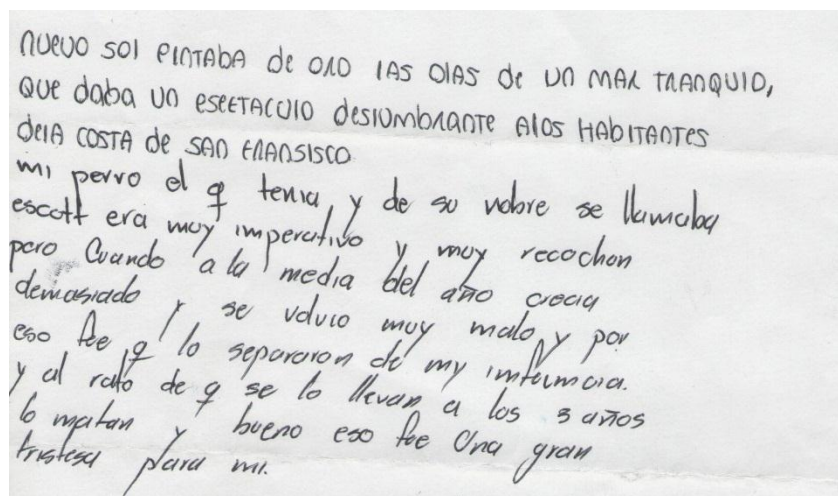 nuevo sol pintaba de oro las olas de un mar tranquio,
que daba un espetaculo deslumbrante alos habitantes
dela costa de san fransisco
mi perro el q tenia, y de su nobre se llamaba
escott era muy imperativo y muy recochon
pero Cuando a la media del año crecia
demasiado y se volvio muy malo y por
eso fee q lo separaron de my imfamcia.
y al rato de q se lo llevan a los 3 años
lo matan y bueno eso fee Una gran
tristesa para mi.